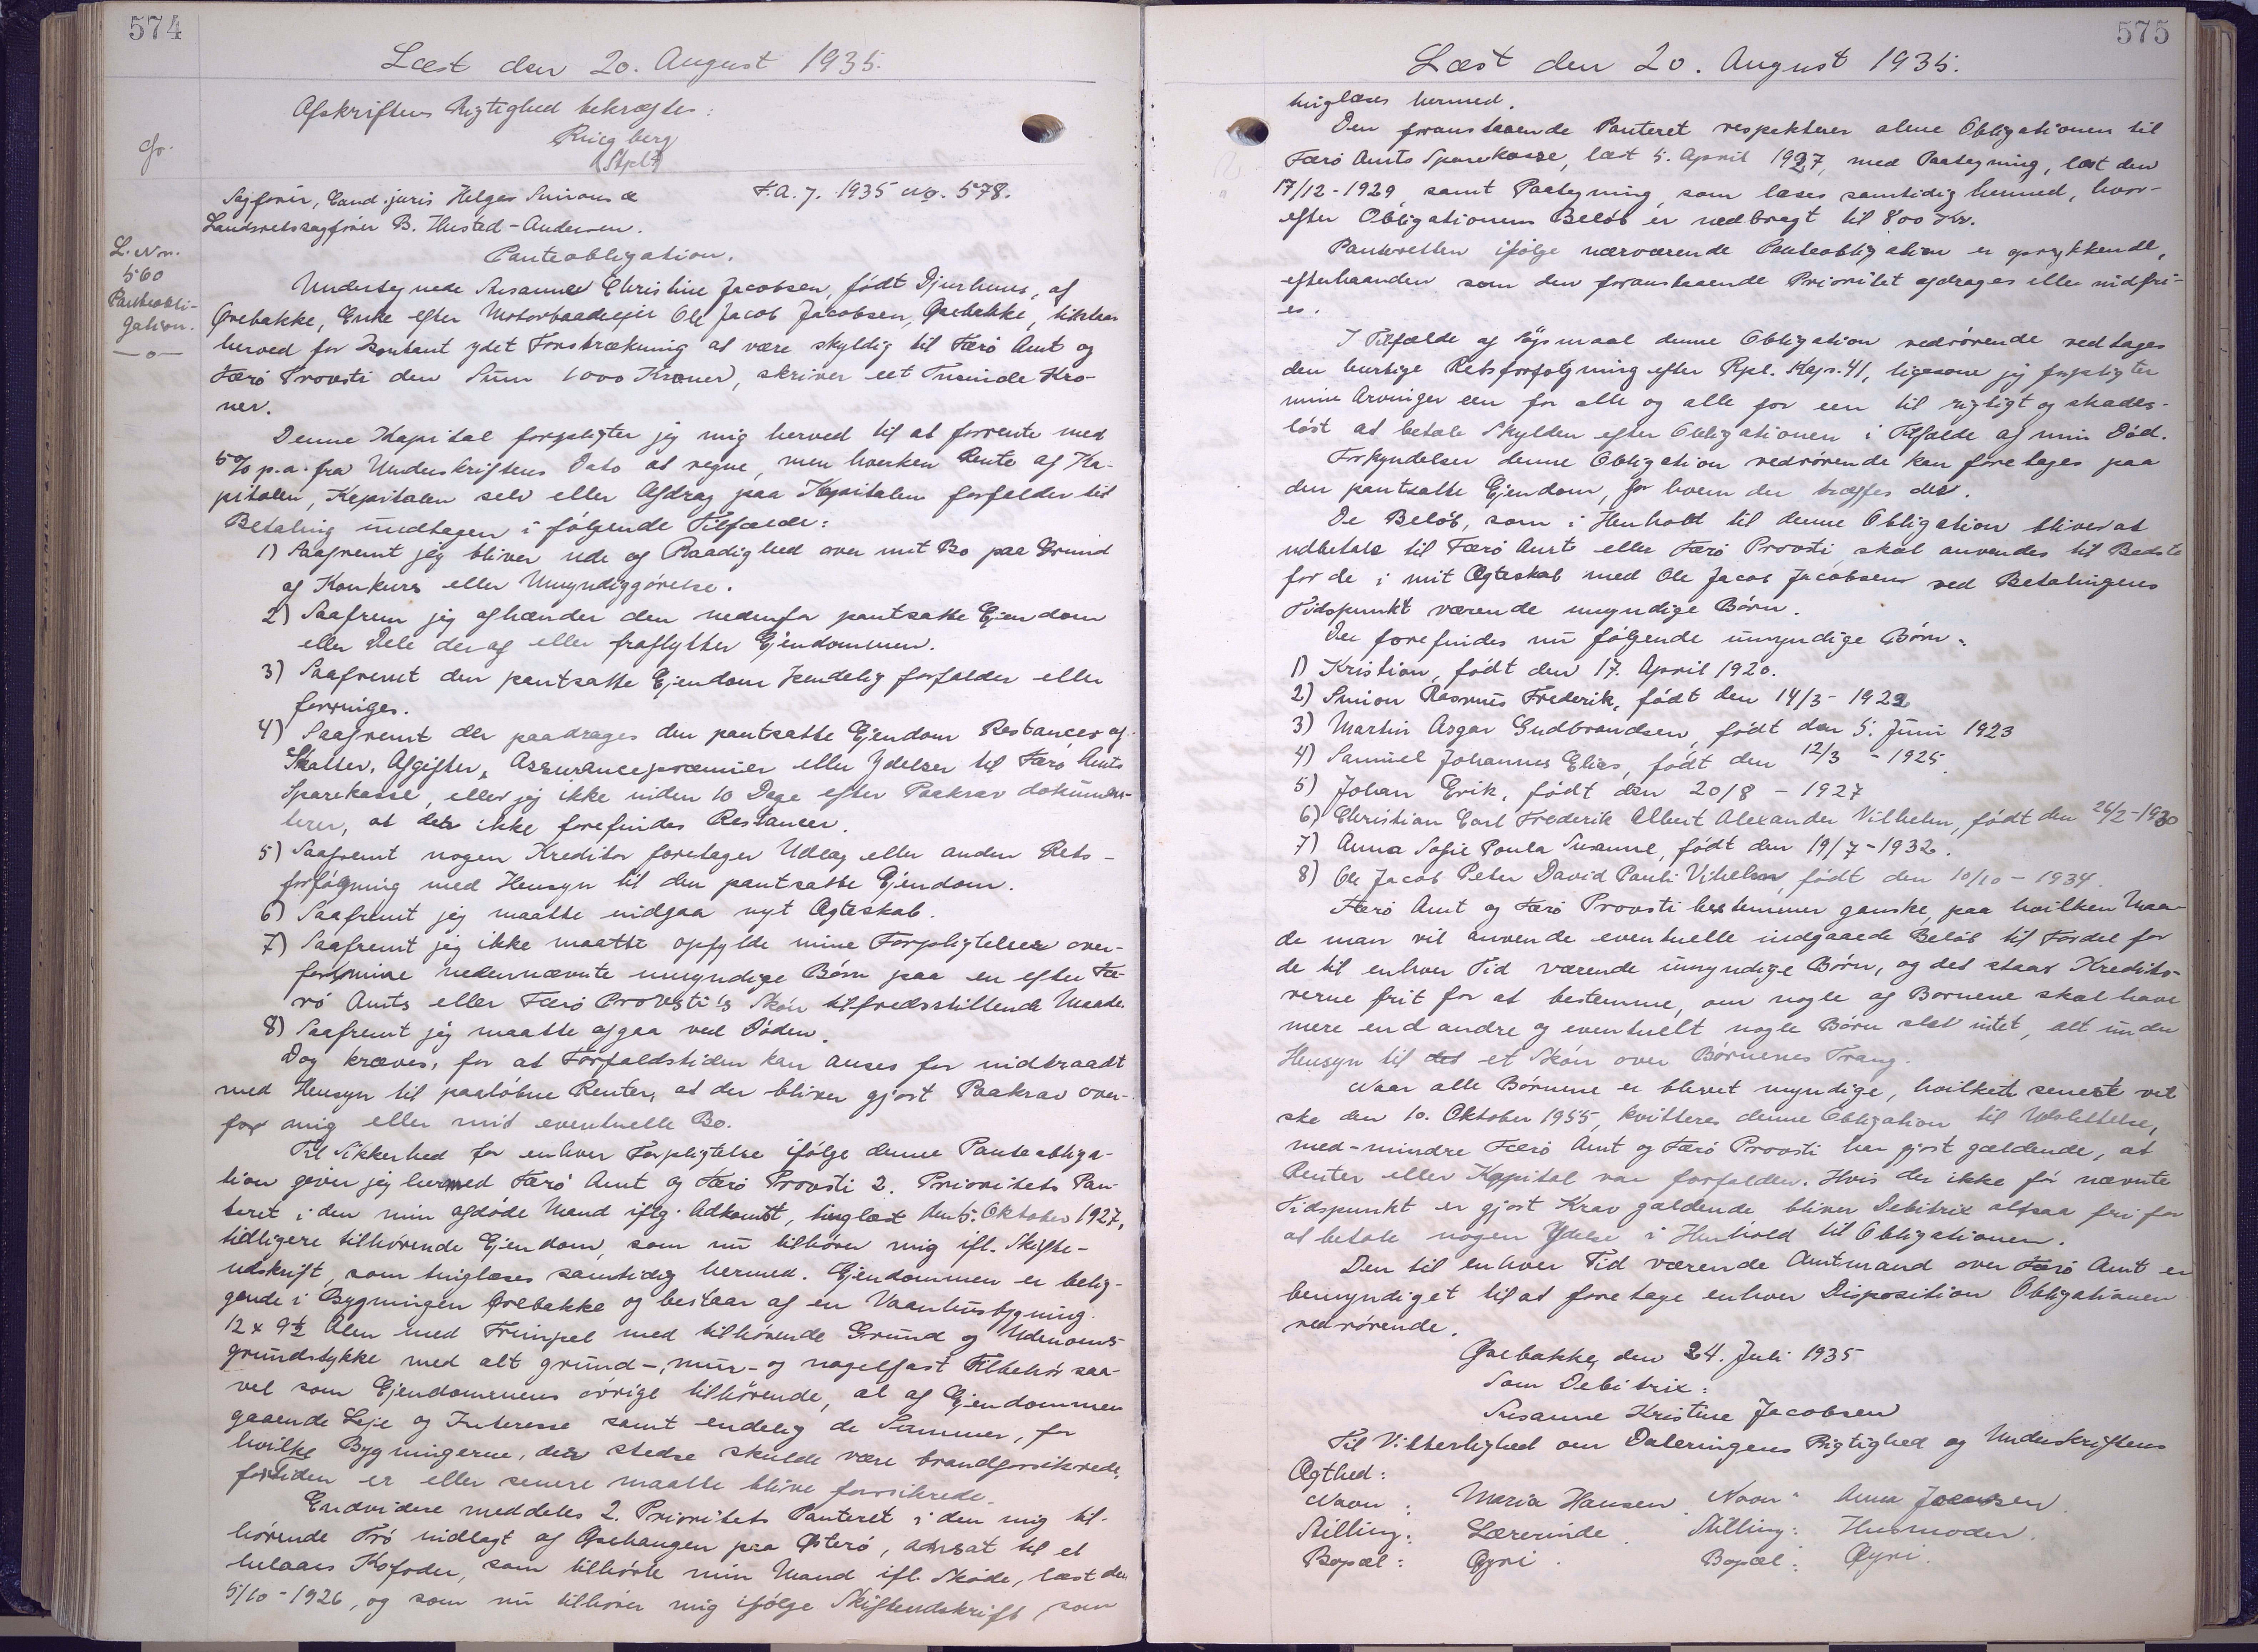 574
Læst den 20. August 1935.
Afskriftens Rigtighed bekræftes:
Ringberg
(Stplt)
Sagfører, Cand. juris Helges Simonsæ
F.A.J. 1935 No. 578.
Landsretssagfører B. Husted-Andersen.
L. Nr.
560
Panteobli-
gation.
—o—
Panteobligation.
Undertegnede Susanne Christine Jacobsen, født Djurhuus, af
Ørebakke, Enke efter Motorbaadsejer Ole Jacob Jacobsen, Ørebakke, tilstaar
herved for kontant ydet Forstrækning at være skyldig til Færø Amt og
Færø Provsti den Sum 1000 Kroner, skriver eet Tusinde Kro-
ner.
Denne Kapital forpligter jeg mig herved til at forrente med
5% p.a. fra Underskriftens Dato at regne, men hverken Rente af Ka-
pitalen, Kapitalen selv eller Afdrag paa Kapitalen forfalder til
Betaling undtagen i følgende Tilfælde:
1) Saafremt jeg bliver ude af Raadighed over mit Bo paa Grund
af Konkurs eller Umyndiggørelse.
2) Saafrem jeg afhænder den nedenfor pantsatte Ejendom
eller Dele deraf eller fraflytter Ejendommen.
3) Saafremt den pantsatte Ejendom kendelig forfalder eller
forringes.
4) Saafremt der paadrages den pantsatte Ejendom Restancer af
Skatter, Afgifter, Assurancepræmier eller Ydelser til Færø Amts
Sparekasse, eller jeg ikke inden 10 Dage efter Paakrav dokumen-
terer, at der ikke forefindes Restancer.
5) Saafremt nogen Kreditor foretager Udlæg eller anden Rets-
forfølgning med Hensyn til den pantsatte Ejendom.
6) Saafremt jeg maatte indgaa nyt Ægteskab.
7) Saafremt jeg ikke maatte opfylde mine Forpligtelser over-
for mine nedennævnte umyndige Børn paa en efter Fæ-
rø Amts eller Færø Provsti's Skøn tilfredsstillende Maade.
8) Saafremt jeg maatte afgaa ved Døden.
Dog kræves, for at Forfaldstiden kan anses for indtraadt
med Hensyn til paaløbne Renter, at der bliver gjort Paakrav over-
for mig eller mit eventuelle Bo.
Til Sikkerhed for enhver Forpligtelse ifølge denne Panteobliga-
tion giver jeg hermed Færø Amt og Færø Provsti 2. Prioritets Pan-
teret i den min afdøde Mand iflg. Adkomst, tinglæst den 5. Oktober 1927,
tidligere tilhørende Ejendom, som nu tilhører mig ifl. Skifte-
udskrift, som tinglæses samtidig hermed. Ejendommen er belig-
gende i Bygningen Ørebakke og bestaar af en Vaanhusbygning
12 x 9½ Alen med Frimpel med tilhørende Grund og Udenoms-
grundstykke med alt grund-, mur- og nagelfast Tilbehør saa-
vel som Ejendommens øvrige tilhørende, al af Ejendommen
gaaende Leje og Interesse samt endelig de Summer, for
hvilke Bygningerne, der stedse skulde være brandforsikrede,
fortiden er eller senere maatte blive forsikrede.
Endvidere meddeles 2. Prioritets Panteret i den mig til-
hørende Trø indlagt af Ørehaugen paa Østerø, ansat til et
helaars Kofoder, som tilhørte min Mand ifl. Skøde, læst den
5/10-1926, og som nu tilhører mig ifølge Skifteudskrift, som
575
Læst den 20. August 1935.
tinglæses hermed.
Den foranstaaende Panteret respekterer alene Obligationen til
Færø Amts Sparekasse, læst 5. April 1927, med Paategning, læst den
17/12-1929, samt Paategning, som læses samtidig hermed, hvor-
efter Obligationens Beløb er nedbragt til 800 Kr.
Panteretten ifølge nærværende Panteobligation er oprykkende,
efterhaanden som den foranstaaende Prioritet afdrages eller indfri-
es.
I Tilfælde af Søgsmaal denne Obligation vedrørende vedtages
den hurtige Retsforfølgning efter Rpl. Kap. 41, ligesom jeg forpligter
mine Arvinger een for alle og alle for een til rigtigt og skades-
løst at betale Skylden efter Obligationen i Tilfælde af min Død.
Forkyndelser denne Obligation vedrørende kan foretages paa
den pantsatte Ejendom, for hvem der træffes der.
De Beløb, som i Henhold til denne Obligation bliver at
udbetale til Færø Amt eller Færø Provsti, skal anvendes til Bedste
for de i mit Ægteskab med Ole Jacob Jacobsen ved Betalingens
Tidspunkt værende umyndige Børn.
Der forefindes nu følgende umyndige Børn:
1) Kristian, født den 17. April 1920.
2) Simon Rasmus Frederik, født den 14/3-1922
3) Martin Asgar Gudbrandsen, født den 5. Juni 1923
4) Samuel Johannes Elias, født den 12/3 - 1925.
5) Johan Erik, født den 20/8 - 1927
6) Christian Carl Frederik Albert Alexander Vilhelm, født den 26/2-1930
7) Anna Sofie Paula Susanne, født den 19/7-1932.
8) Ole Jacob Peter David Pauli Vihelm, født den 10/10 - 1934.
Færø Amt og Færø Provsti bestemmer ganske, paa hvilken Maa-
de man vil anvende eventuelle indgaaede Beløb til Fordel for
de til enhver Tid værende umyndige Børn, og det staar Kredito-
rerne frit for at bestemme, om nogle af Børnene skal have
mere end andre og eventuelt nogle Børn slet intet, alt under
Hensyn til det et Skøn over Børnenes Trang.
Naar alle Børnene er blevet myndige, hvilket senest vil
ske den 10. Oktober 1955, kvitteres denne Obligation til Udslettelse,
med-mindre Færø Amt og Færø Provsti har gjort gældende, at
Renter eller Kapital var forfalden. Hvis der ikke før nævnte
Tidspunkt er gjort Krav gældende bliver Debitrix altsaa fri for
at betale nogen Ydelse i Henhold til Obligationen.
Den til enhver Tid værende Amtmand over Færø Amt er
bemyndiget til at foretage enhver Disposition Obligationen
vedrørende.
Ørebakke, den 24. Juli 1935
Som Debitrix:
Susanne Kristine Jacobsen
Til Vitterlighed om Dateringens Rigtighed og Underskriftens
Ægthed:
Navn: Maria Hansen. Navn: Anna Jacobsen.
Stilling: Lærerinde. Stilling: Husmoder.
Bopæl: Øyri. Bopæl: Øyri.